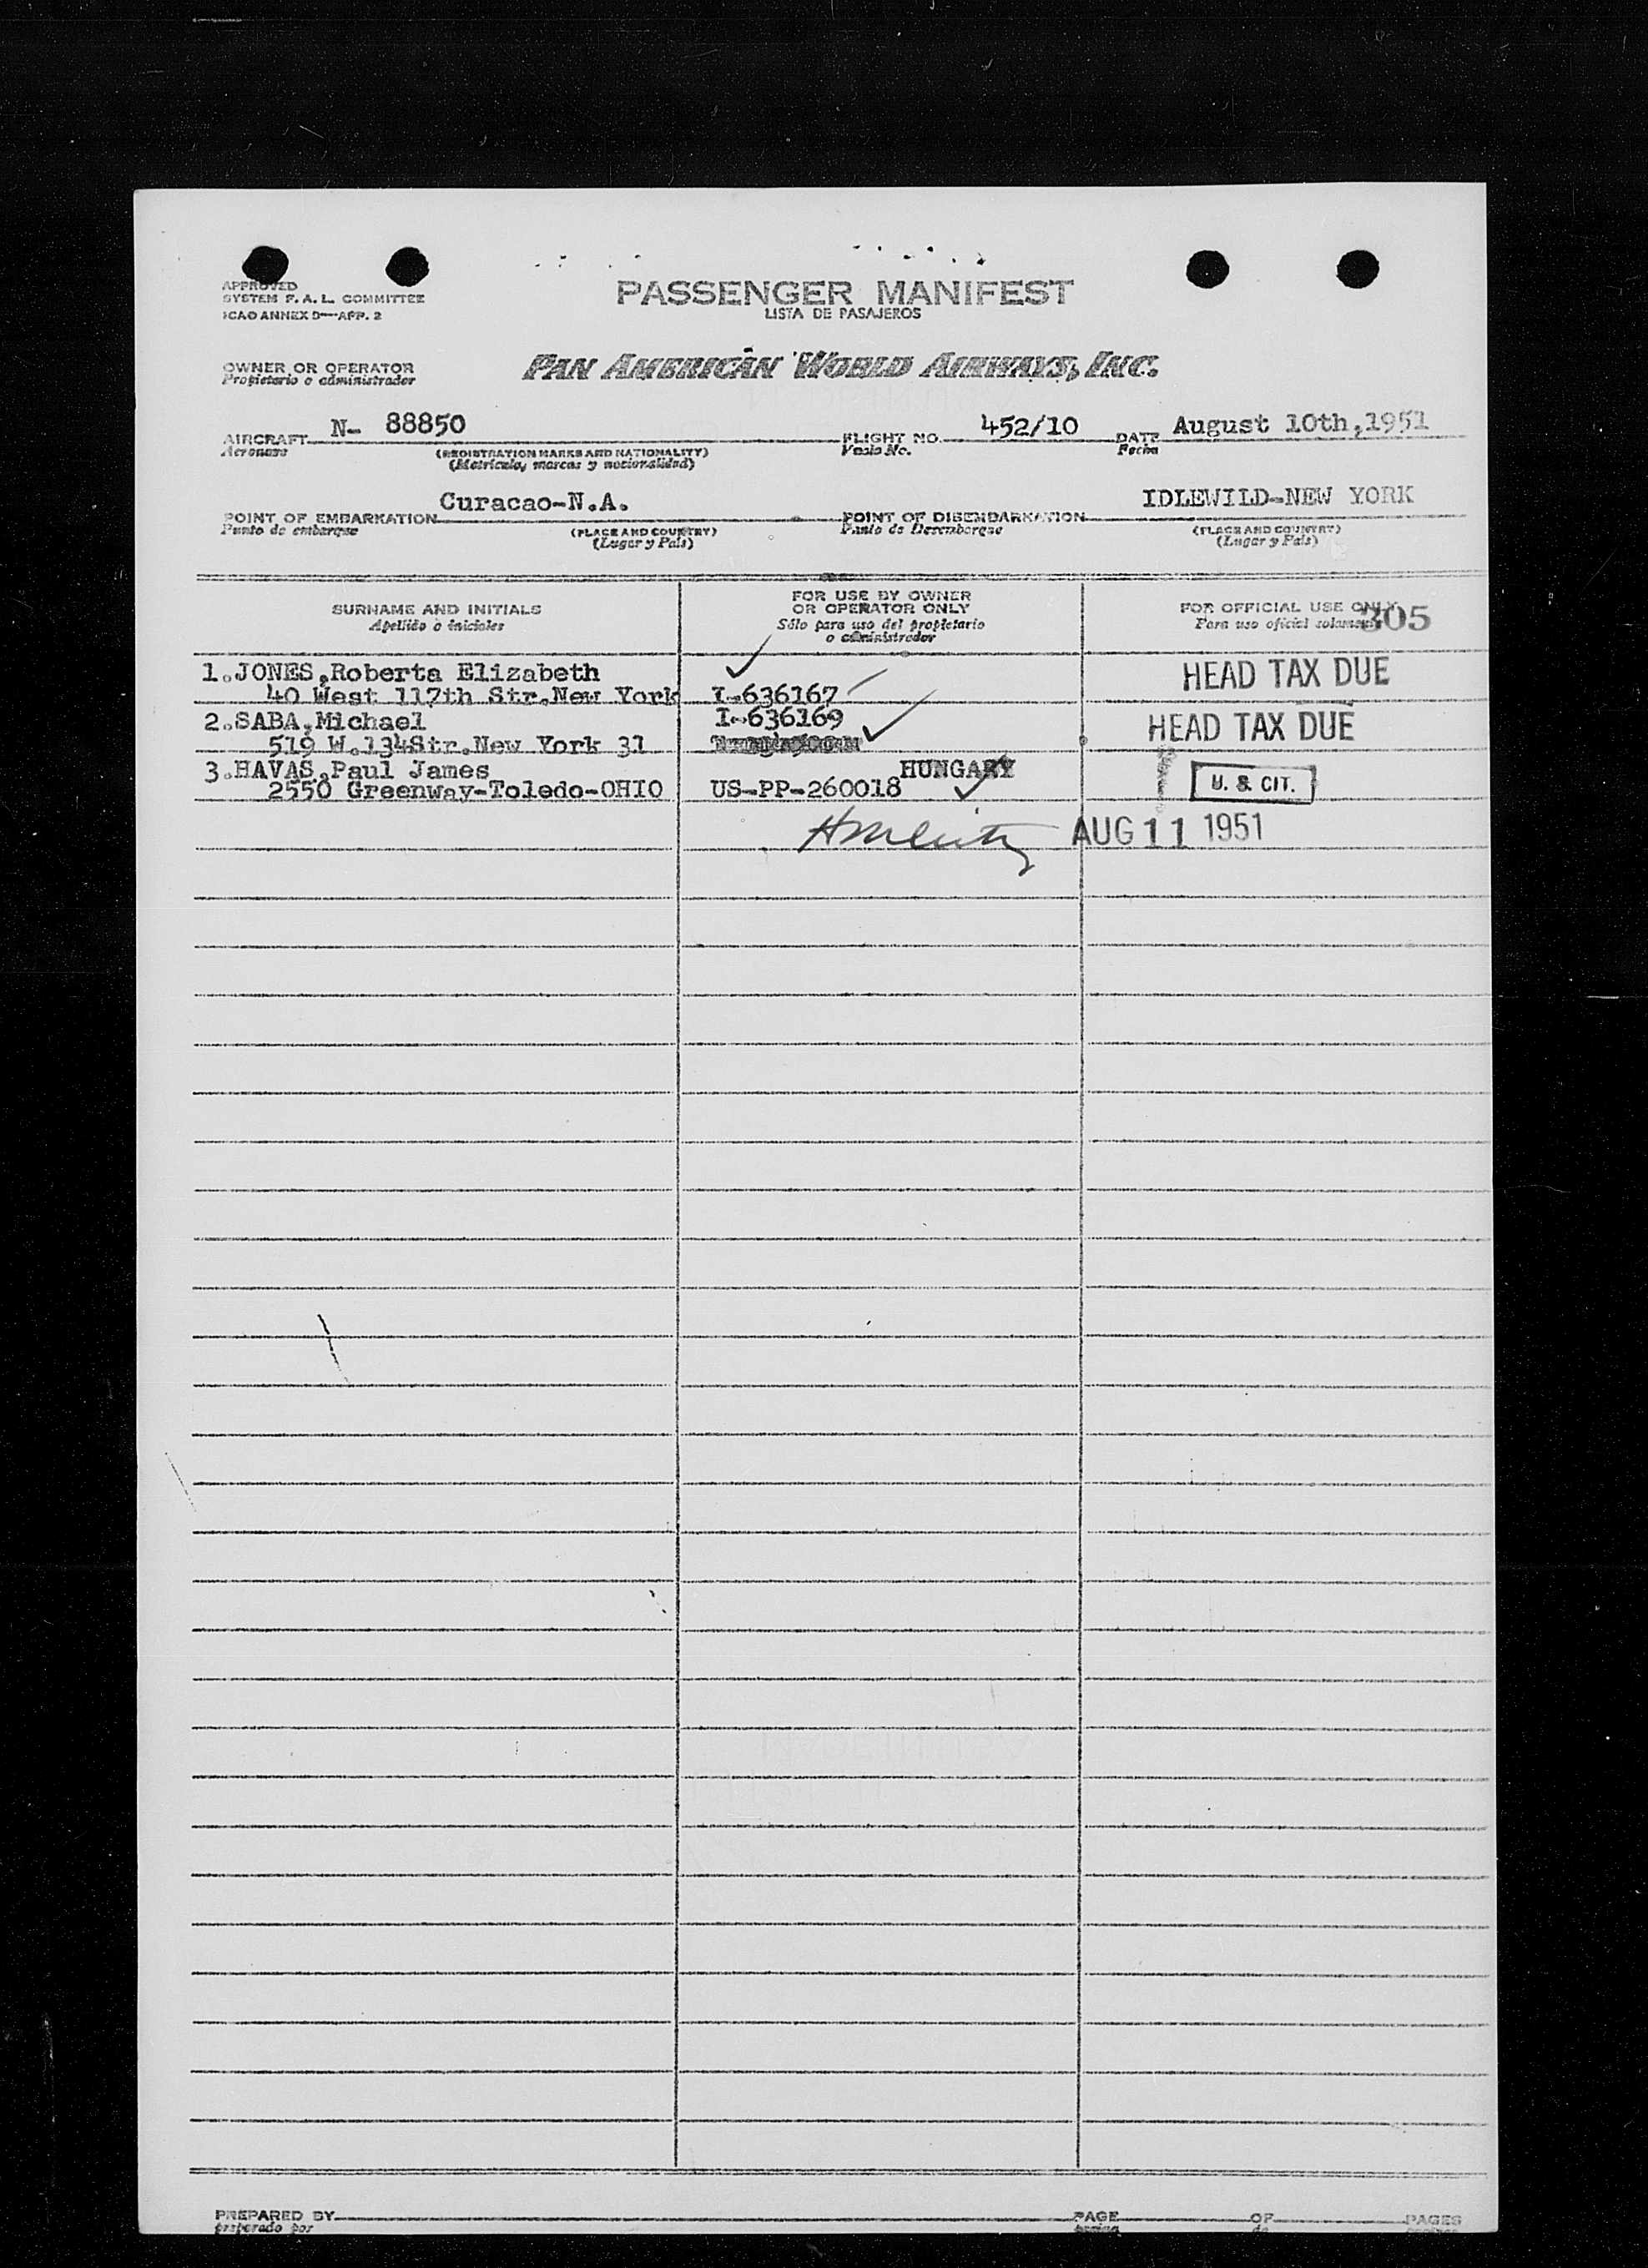 APPROVED
SYSTEM F. A. L. COMMITTEE
ICAO ANNEX 9—APP. 2
PASSENGER MANIFEST
LISTA DE PASAJEROS
OWNER OR OPERATOR
Propietario o administrador
PAN AMERICAN WORLD AIRWAYS, INC.
AIRCRAFT N- 88850 FLIGHT NO. 452/10 DATE August 10th,1951
Aeronave (REGISTRATION MARKS AND NATIONALITY) Vuelo No. Fecha
(Matrícula, marcas y nacionalidad)
POINT OF EMBARKATION Curacao-N.A. POINT OF DISEMBARKATION IDLEWILD-NEW YORK
Punto de embarque (PLACE AND COUNTRY) Punto de Desembarque (PLACE AND COUNTRY)
(Lugar y País) (Lugar y País)
SURNAME AND INITIALS
Apellido o iniciales
FOR USE BY OWNER
OR OPERATOR ONLY
Sólo para uso del propietario
o administrador
FOR OFFICIAL USE ONLY
Para uso oficial solamente
305
1.JONES,Roberta Elizabeth HEAD TAX DUE
40 West 117th Str.New York I-636167
2.SABA,Michael I-636169 HEAD TAX DUE
519 W.134Str.New York 31
3.HAVAS,Paul James HUNGARY
2550 Greenway-Toledo-OHIO US-PP-260018 U. S. CIT.
AUG 11 1951
PREPARED BY PAGE OF PAGES
preparado por página de